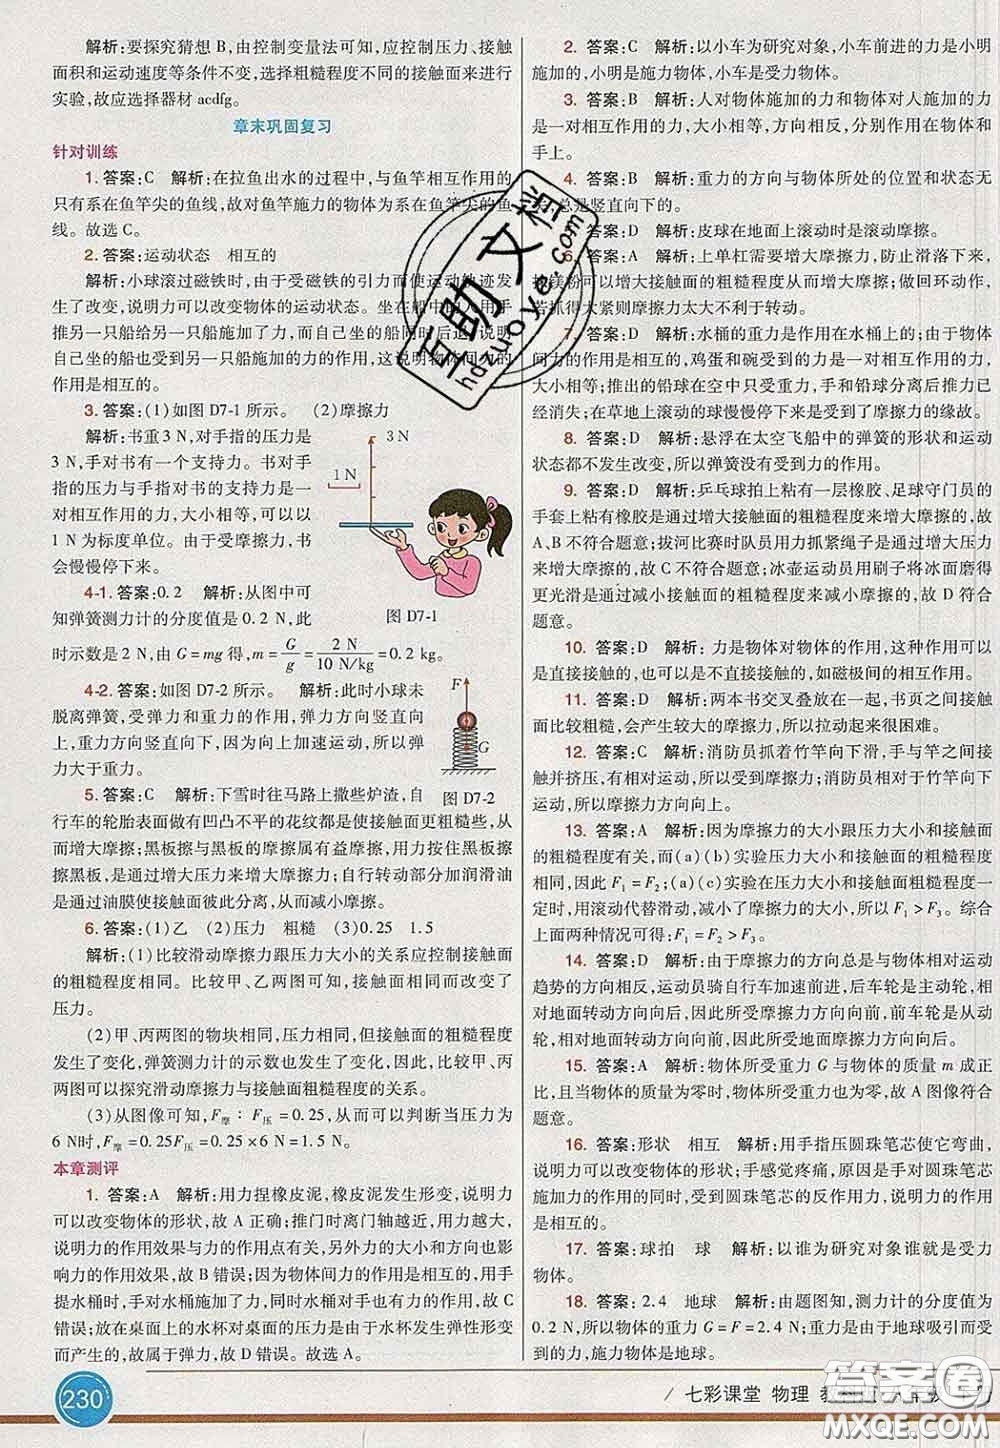 解析:要探究猜想 B,由控制变量法可知,应控制压力、接触
面积和运动速度等条件不变,选择粗糙程度不同的接触面来进行
实验,故应选择器材 acdfg。
章末巩固复习
针对训练
1. 答案:C 解析:在拉鱼出水的过程中,与鱼竿相互作用的
只有系在鱼竿尖的鱼线,故对鱼竿施力的物体为系在鱼竿尖的鱼
线。故选 C。
2. 答案:运动状态 相互的
解析:小球滚过磁铁时,由于受磁铁的引力而使运动轨迹发
生了改变,说明力可以改变物体的运动状态。坐在船中的人用手
推另一只船给另一只船施加了力,而自己坐的船同时后退,说明
自己坐的船也受到另一只船施加的力的作用,这说明物体间力的
作用是相互的。
3. 答案:(1)如图 D7-1 所示。 (2)摩擦力
解析:书重 3 N,对手指的压力是
3 N,手对书有一个支持力。书对手
指的压力与手指对书的支持力是一
对相互作用的力,大小相等,可以以
1 N 为标度单位。由于受摩擦力,书
会慢慢停下来。
3 N
1 N
图 D7-1
4-1. 答案:0.2 解析:从图中可
知弹簧测力计的分度值是 0.2 N,此
时示数是 2 N,由 G=mg 得,m=G/g=2 N/10 N/kg=0.2 kg。
4-2. 答案:如图 D7-2 所示。 解析:此时小球未
脱离弹簧,受弹力和重力的作用,弹力方向竖直向
上,重力方向竖直向下,因为向上加速运动,所以弹
力大于重力。
F
G
图 D7-2
5. 答案:C 解析:下雪时往马路上撒些炉渣,自
行车的轮胎表面做有凹凸不平的花纹都是使接触面更粗糙些,从
而增大摩擦;黑板擦与黑板的摩擦属有益摩擦,用力按住黑板擦擦
黑板,是通过增大压力来增大摩擦的。自行车转动部分加润滑油
是通过油膜使接触面彼此分离,从而减小摩擦。
6. 答案:(1)乙 (2)压力 粗糙 (3)0.25 1.5
解析:(1)比较滑动摩擦力跟压力大小的关系应控制接触面
的粗糙程度相同。比较甲、乙两图的接触面粗糙程度相同而改变了
压力。
(2)甲、丙两图的物块相同,压力相同,但接触面的粗糙程度
发生了变化,弹簧测力计的示数也发生了变化,因此,比较甲、丙
两图可以探究滑动摩擦力与接触面粗糙程度的关系。
(3)从图像可知,F摩∶F压=0.25,从而可以判断当压力为
6 N时,F摩=0.25F压=0.25×6 N=1.5 N。
本章测评
1. 答案:A 解析:用力捏橡皮泥,橡皮泥发生形变,说明力
可以改变物体的形状,故 A 正确;推门时离门轴越近,用力越大,
说明力的作用效果与力的作用点有关,另外力的大小和方向也影
响力的作用效果,故 B 错误;因为物体间力的作用是相互的,用手
提水桶时,手对水桶施加了力,同时水桶对手也有力的作用,故 C
错误;放在桌面上的水杯对桌面的压力是由于水杯发生弹性形变
而产生的,故属于弹力,故 D 错误。故选 A。
2. 答案:C 解析:以小车为研究对象,小车前进的力是小明
施加的,小明是施力物体,小车是受力物体。
3. 答案:B 解析:人对物体施加的力和物体对人施加的力
是一对相互作用的力,大小相等,方向相反,分别作用在物体和
手上。
4. 答案:B 解析:重力的方向与物体所处的位置和状态无
总是竖直向下的。
皮球在地面上滚动时是滚动摩擦。
6. 答案:B 解析:上单杠需要增大摩擦力,防止滑落下来,
镁粉可以增大接触面的粗糙程度从而增大摩擦力;做回环动作,
若抓得太紧则摩擦力太大不利于转动。
7. 答案:D 解析:水桶的重力是作用在水桶上的;由于物体
间力的作用是相互的,鸡蛋和碗受到的力是一对相互作用的力,
大小相等;推出的铅球在空中只受重力,手和铅球分离后推力已
经消失;在草地上滚动的球慢慢停下来是受到了摩擦力的缘故。
8. 答案:D 解析:悬浮在太空飞船中的弹簧的形状和运动
状态都不发生改变,所以弹簧没有受到力的作用。
9. 答案:D 解析:乒乓球拍上粘有一层橡胶、足球守门员的
手套上粘有橡胶是通过增大接触面的粗糙程度来增大摩擦的,故
A、B 不符合题意;拔河比赛时队员用力抓紧绳子是通过增大压力
来增大摩擦的,故 C 不符合题意;冰壶运动员用刷子将冰面磨得
更光滑是通过减小接触面的粗糙程度来减小摩擦的,故 D 符合
题意。
10. 答案:D 解析:力是物体对物体的作用,这种作用可以
是直接接触的,也可以是不直接接触的,如磁极间的相互作用。
11. 答案:D 解析:两本书交叉叠放在一起,书页之间接触
面比较粗糙,会产生较大的摩擦力,所以拉动起来很困难。
12. 答案:C 解析:消防员抓着竹竿向下滑,手与竿之间接
触并挤压,有相对运动,产生摩擦力;消防员相对于竹竿向下
运动,所以摩擦力方向向上。
13. 答案:A 解析:因为摩擦力的大小跟压力大小和接触面
的粗糙程度有关,而(a)(b)实验压力大小和接触面的粗糙程度相
同,因此 F₁=F₂;(a)(c)实验在压力大小和接触面粗糙程度一
定时,用滚动代替滑动,减小了摩擦力的大小,所以 F₁>F₃。综合
上面两种情况可得:F₁=F₂>F₃。
14. 答案:D 解析:由于摩擦力的方向总是与物体相对运动
趋势的方向相反,运动员骑自行车加速前进,后车轮是主动轮,相
对地面转动方向向后,因此所受摩擦力方向向前,前车轮是从动
轮,相对地面转动方向向前,因此所受摩擦力方向向后。
15. 答案:A 解析:物体所受重力 G 与物体的质量 m 成正
比,且当物体的质量为零时,物体所受重力也为零,故 A 图像符合
题意。
16. 答案:形状 相互 解析:用手指压圆珠笔芯使它弯曲,
说明力可以改变物体的形状;手感觉疼痛,原因是手指对圆珠笔芯
施加力的作用的同时,受到圆珠笔芯的反作用力,说明力的作用
是相互的。
17. 答案:球拍 球 解析:以谁为研究对象谁就是受力
物体。
18. 答案:2.4 地球 解析:由题图知,测力计的分度值为
0.2 N,所以物体的重力 G=F=2.4 N;重力是由于地球吸引而受
到的力,施力物体是地球。
230
七彩课堂 物理
互助文档
hdzuoye.com
答案圈
MXQE.COM